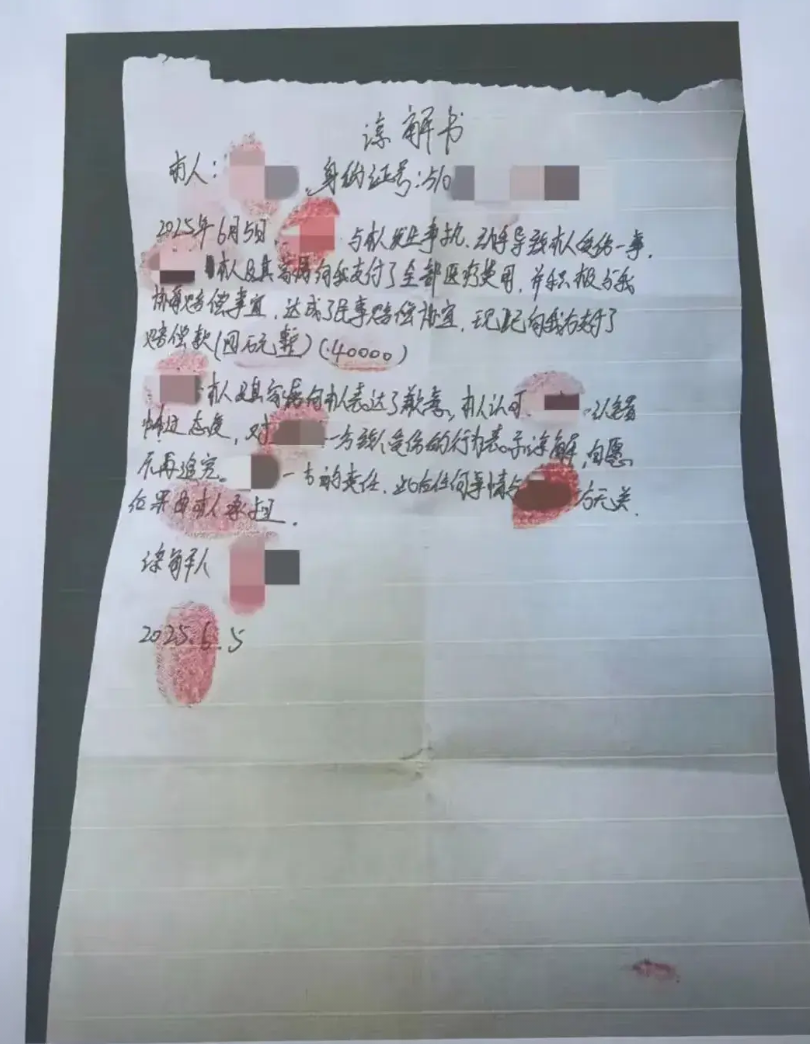 谅解书
本人： 身份证号：510
2025年6月5日 与本人发生争执，动手导致本人受伤一事，
本人及其家属向我支付了全部医疗费用，并积极与我
协商赔偿事宜，达成了民事赔偿协宜，现已向我方支付了
赔偿款（ 元整）（40000）
本人及其家属向本人表达了歉意，本人认可 认错
态度，对 一方致人受伤的行为表示谅解，自愿
不再追究 一方的责任，此后任何事情与 方无关，
后果由本人承担．
谅解人
2025.6.5